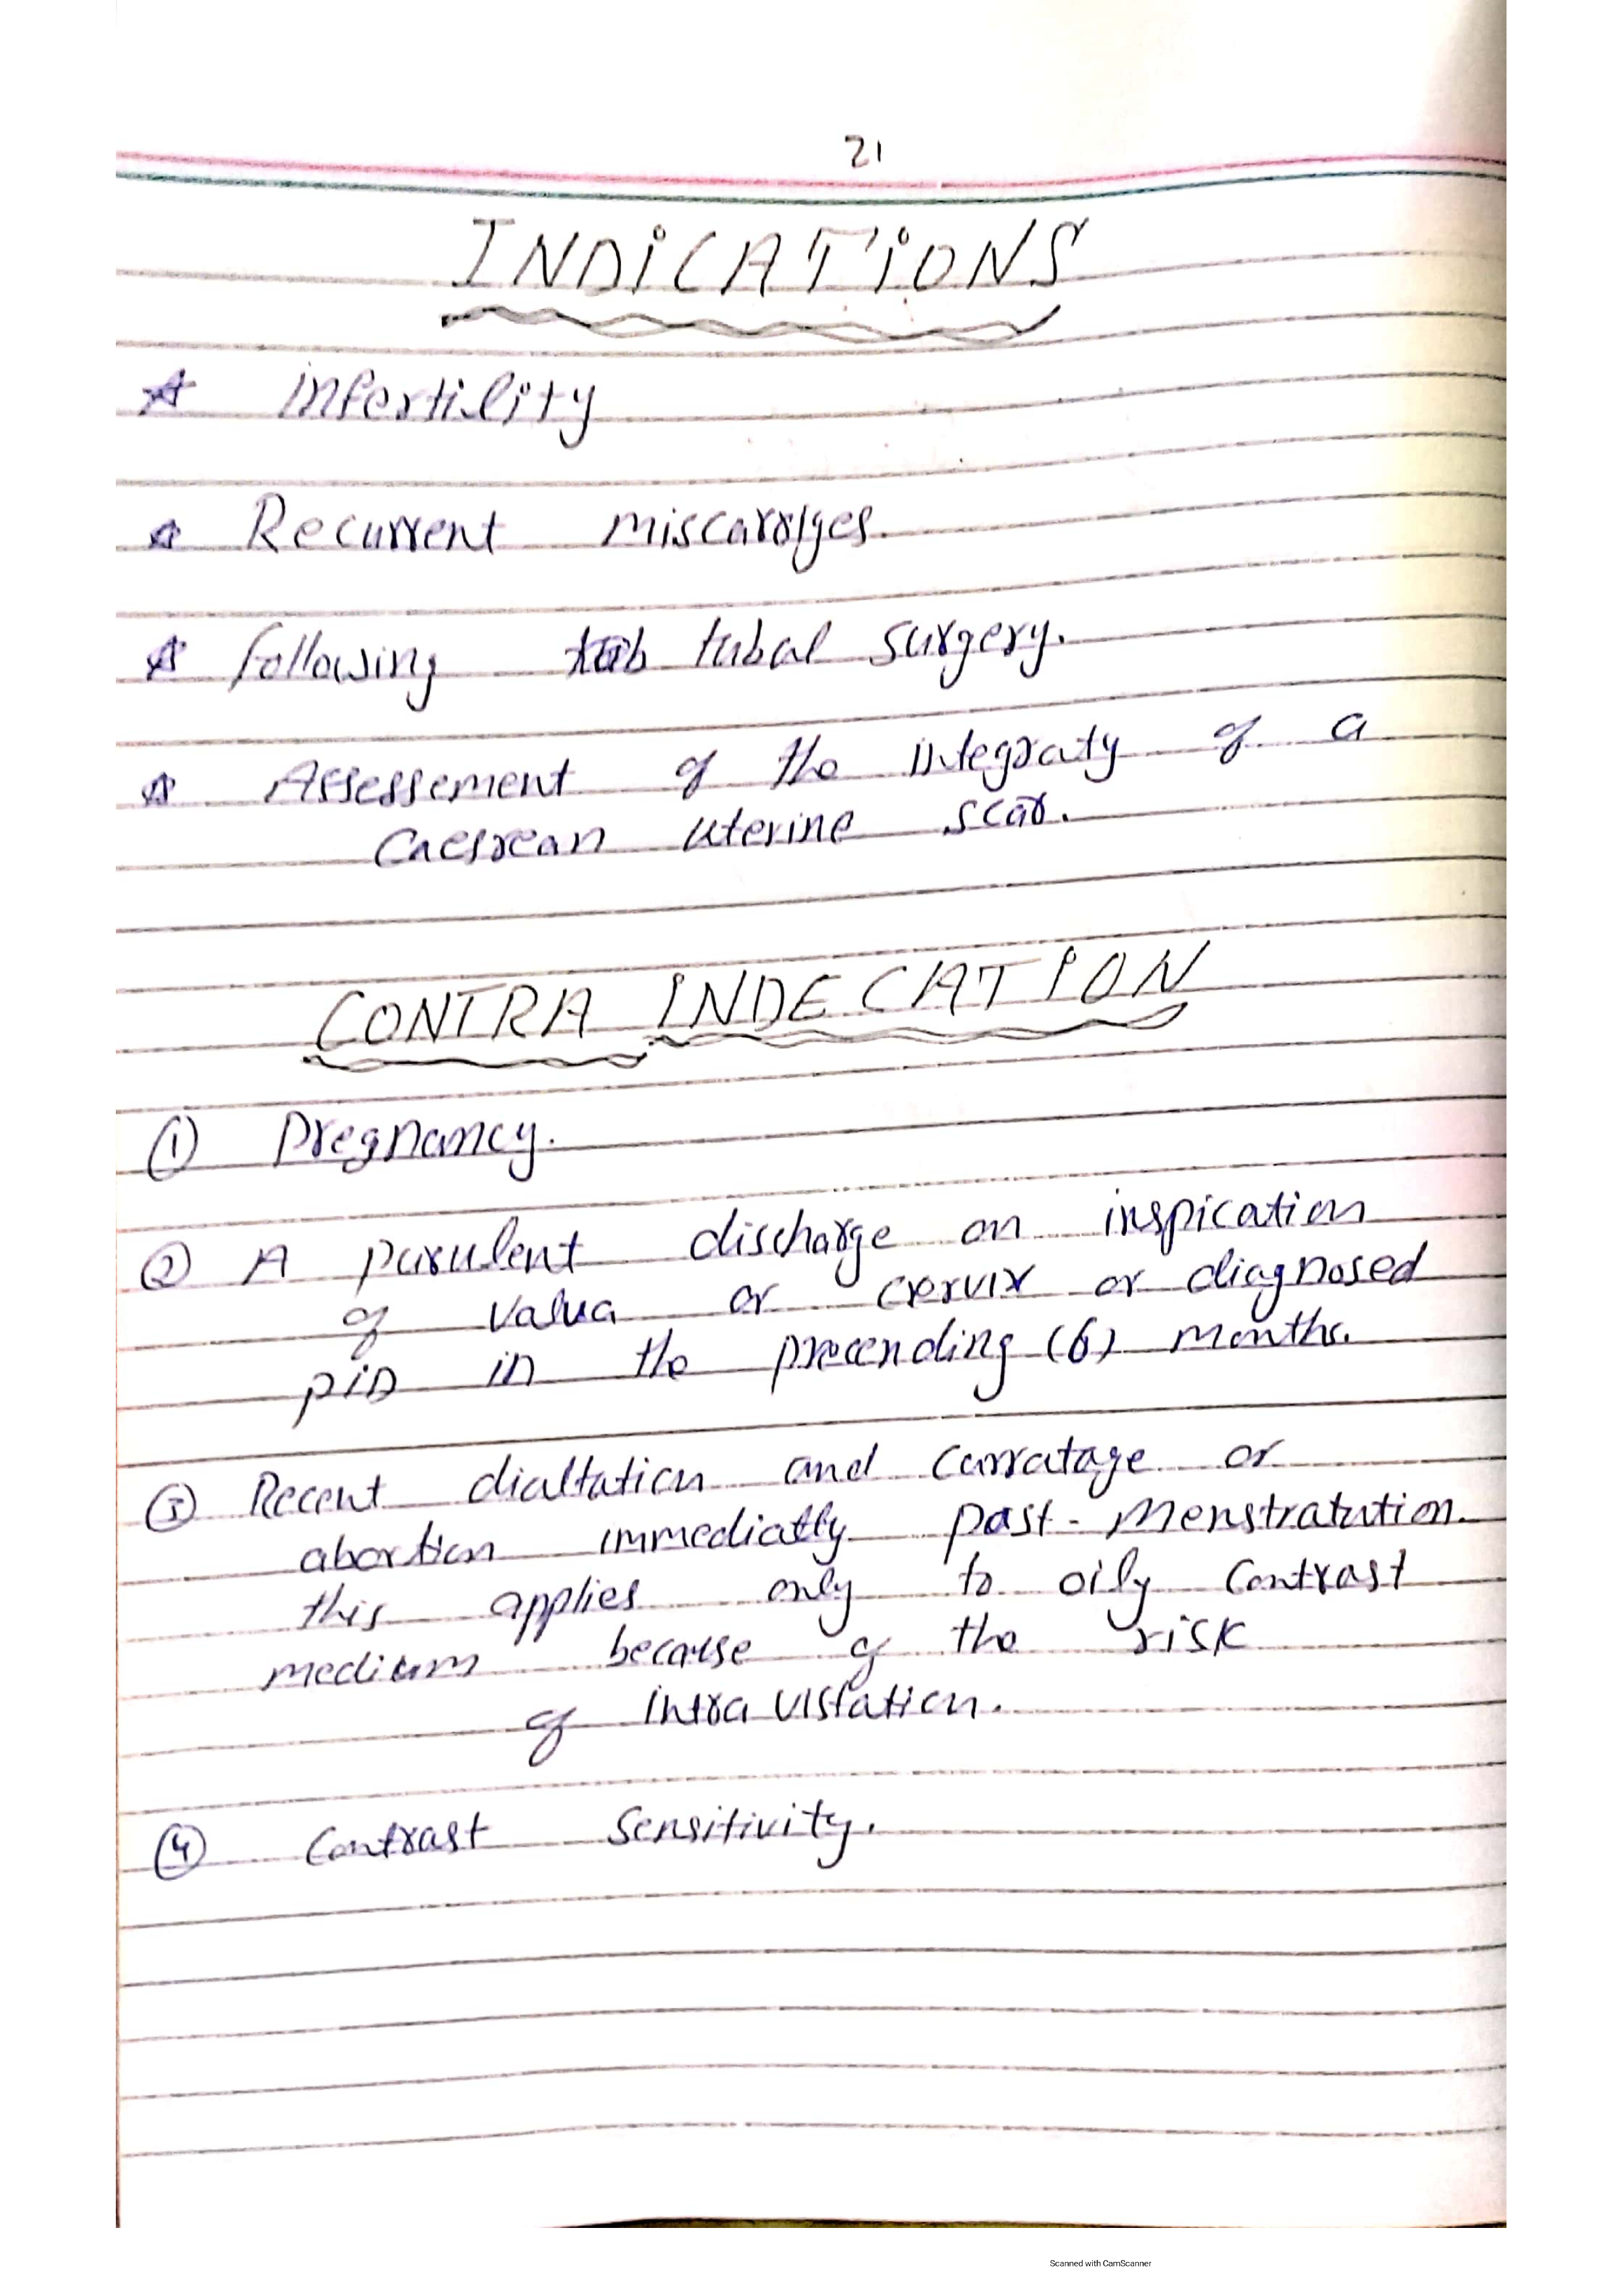 21
INDICATIONS
☆ infertility
☆ Recurrent miscarriges.
☆ following tub tubal surgery.
☆ Assessement of the integraty of a
Caesrean uterine scar.
CONTRA INDECATION
① Pregnancy.
② A purulent discharge on inspication
of Valua or cervix or diagnosed
PID in the precending (6) months.
③ Recent dialtation and Curratage or
abortion immediatly past-menstratution.
this applies only to oily Contrast
medium because of the risk
of intra vistation.
④ Contrast Sensitivity.
Scanned with CamScanner